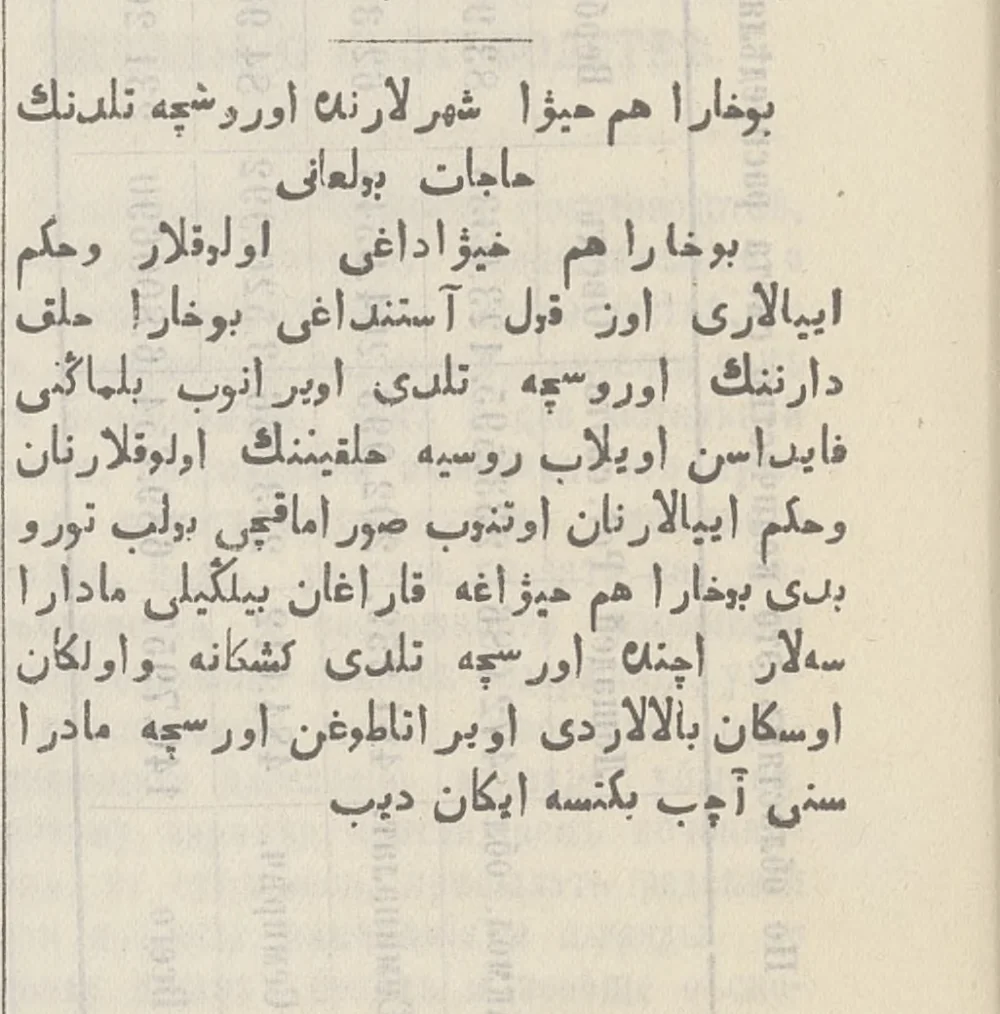 بوخارا هم حيۋا شهرلارنده اوروشچه تلدنك
حاجات بولعانى
بوخارا هم خيۋاداغى اولوقلار وحكم
اييالارى اوز قول آستنداغى بوخارا حلق
دارننك اوروسچه تلدى اويرانوب بلماڭنى
فايداسن اويلاب روسيه حلقيننك اولوقلارنان
وحكم اييالارنان اوتنوب صوراماقچى بولب تورو
بدى بوخارا هم حيۋاغه قاراغان بيلڭيلى مادارا
سەلار اچنده اورسچه تلدى كشكانه واولكان
اوسكان بالالاردى اويراتاطوغن اورسچه مادرا
سنى آچب بكتسه ايكان ديب